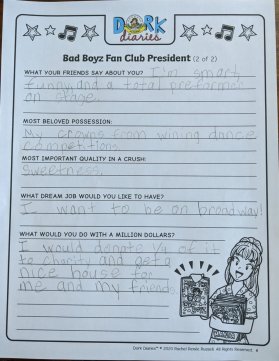 DORK
diaries
Bad Boyz Fan Club President (2 of 2)
WHAT YOUR FRIENDS SAY ABOUT YOU? I'm smart,
funny and a total preformer
on stage.
MOST BELOVED POSSESSION:
My crowns from wining dance
competitions.
MOST IMPORTANT QUALITY IN A CRUSH:
Sweetness
WHAT DREAM JOB WOULD YOU LIKE TO HAVE?
I want to be on broadway!
WHAT WOULD YOU DO WITH A MILLION DOLLARS?
I would donate 1/4 of it
to charity and get a
nice house for
me and my friends
Dork Diaries™ © 2020 Rachel Renée Russell. All Rights Reserved.